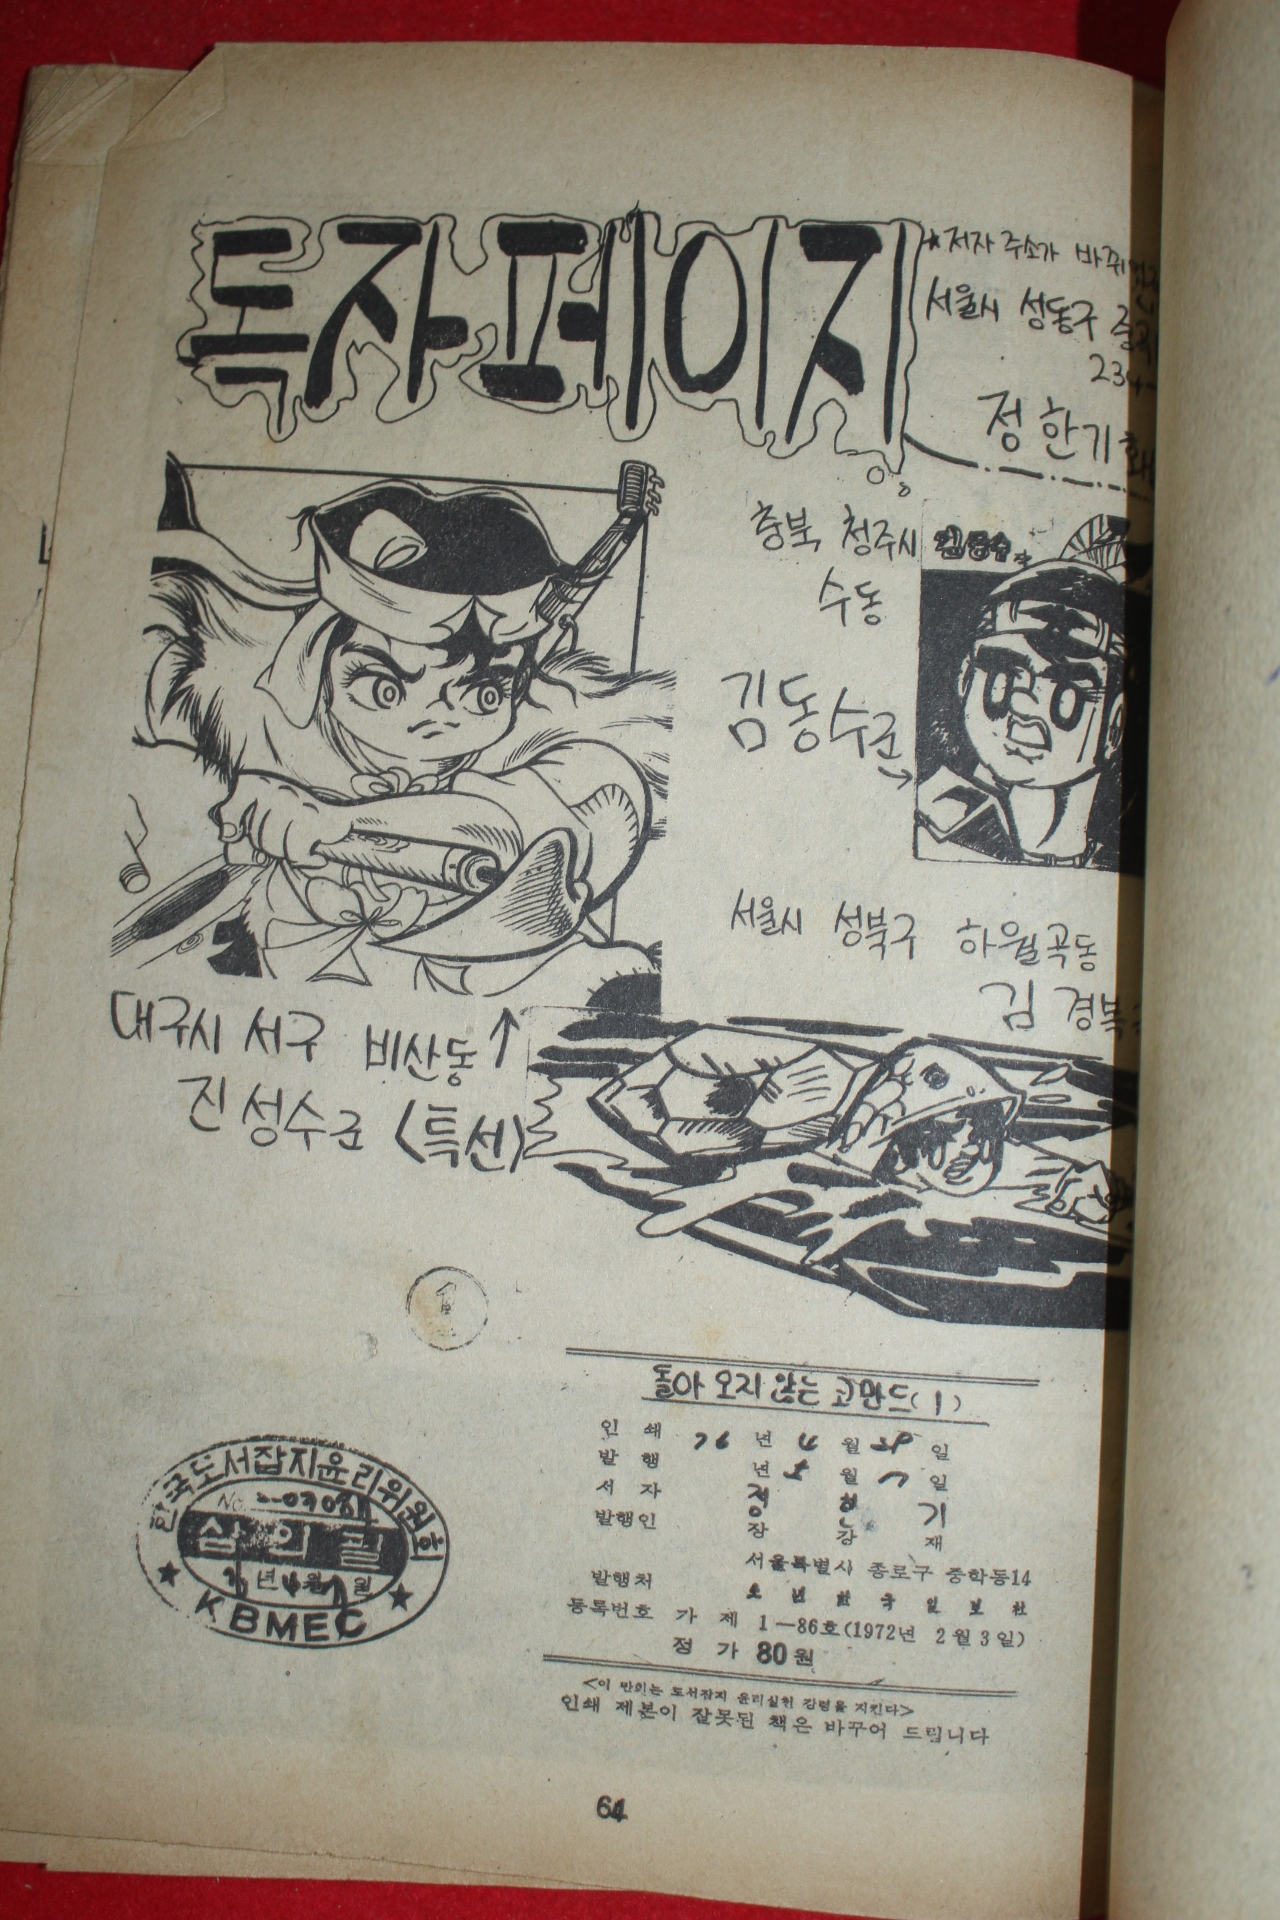 독자페이지
*저자 주소가 바뀌
서울시 성동구 중곡
234-
정한기
충북 청주시
수동
김동수군→
서울시 성북구 하월곡동
김경북
대구시 서구 비산동↑
진성수군 (특선)
돌아 오지 않는 코만드(1)
인 쇄 76년 4월 29일
발 행 년 5월 7일
저 자 정한기
발행인 장강재
서울특별시 종로구 중학동14
발행처 소년한국일보社
등록번호 가 제 1—86호(1972년 2월3일)
정 가 80원
<이 만화는 도서잡지 윤리실천 강령을 지킨다>
인쇄 제본이 잘못된 책은 바꾸어 드립니다
한국도서잡지윤리위원회
No.
심의필
년 4월 일
KBMEC
64